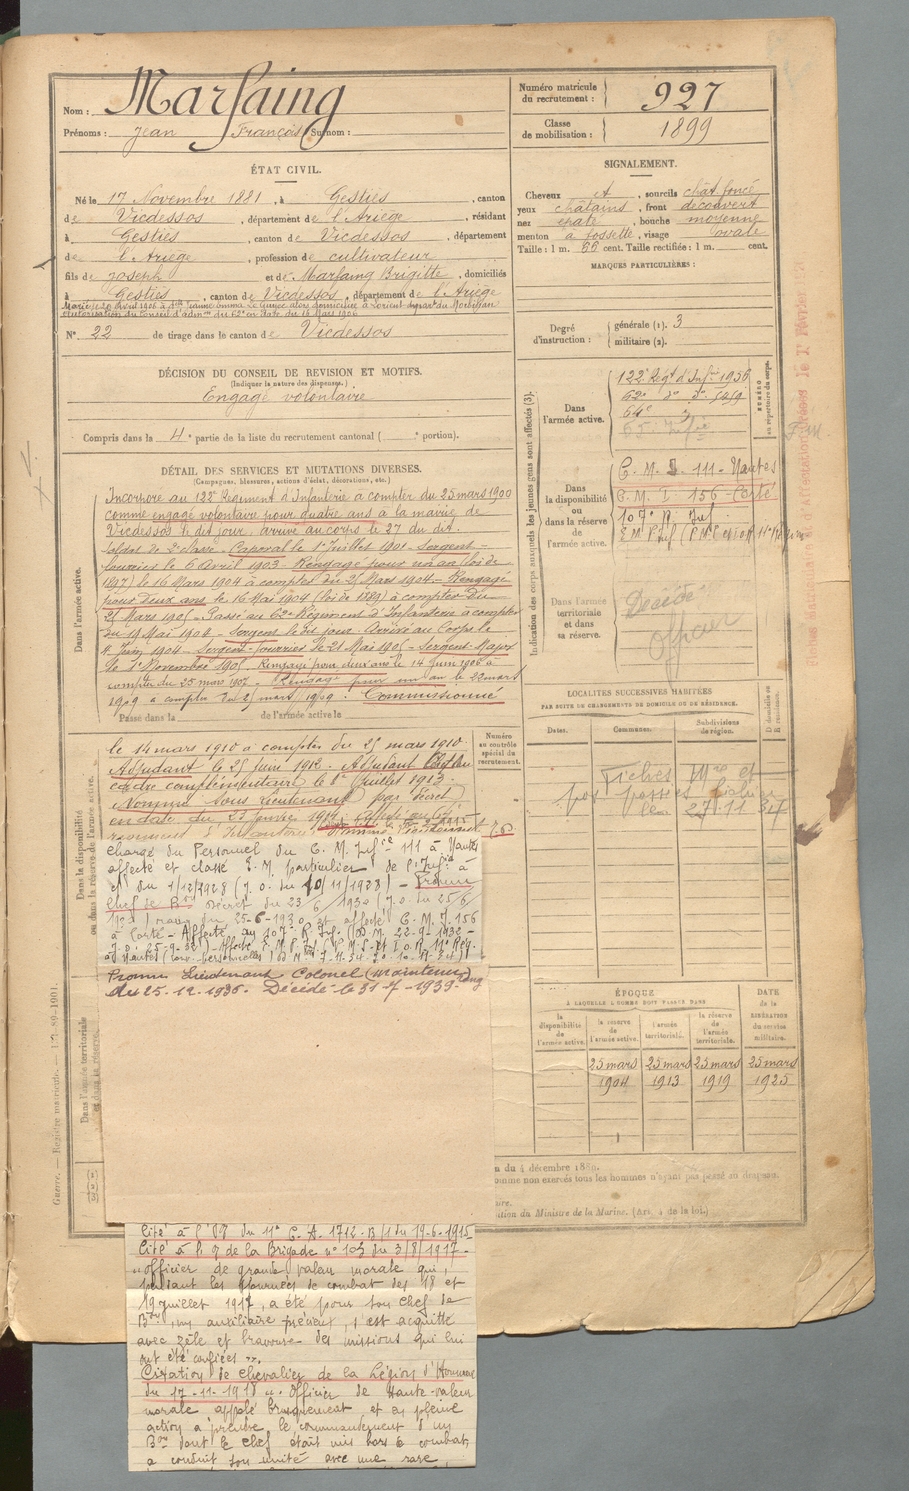 Nom : Marfaing
Prénoms : Jean François Surnom :
Numéro matricule du recrutement : 927
Classe de mobilisation : 1899
ÉTAT CIVIL.
Né le 17 Novembre 1881, à Gestiès, canton
de Vicdessos, département de l'Ariège, résidant
à Gestiès, canton de Vicdessos, département
de l'Ariège, profession de cultivateur
fils de Joseph et de Marfaing Brigitte, domiciliés
à Gestiès, canton de Vicdessos, département de l'Ariège
Marié le 30 Avril 1906 à Jeanne Emma Le domiciliée à Lorient dépt du Morbihan
autorisation du Conseil d'adm du 62e en date du 18 Mars 1906
N° 22 de tirage dans le canton de Vicdessos
SIGNALEMENT.
Cheveux et, sourcils chât. foncé
yeux châtains, front découvert
nez épaté, bouche moyenne
menton à fossette, visage ovale
Taille : 1 m. 66 cent. Taille rectifiée : 1 m. cent.
MARQUES PARTICULIÈRES :
Degré d'instruction : générale (1). 3
militaire (2).
DÉCISION DU CONSEIL DE REVISION ET MOTIFS.
(Indiquer la nature des dispenses.)
Engagé volontaire
Compris dans la 4e partie de la liste du recrutement cantonal ( e portion).
DÉTAIL DES SERVICES ET MUTATIONS DIVERSES.
(Campagnes, blessures, actions d'éclat, décorations, etc.)
Dans l'armée active.
Incorporé au 122e Régiment d'Infanterie à compter du 25 mars 1900
comme engagé volontaire pour quatre ans à la mairie de
Vicdessos le dit jour. arrivé au corps le 27 du dit.
Soldat de 2e classe. Caporal le 1er Juillet 1901 - Sergent-
fourrier le 6 Avril 1903 - Rengagé pour un an (loi de
1897) le 16 Mars 1904 à compter du 25 Mars 1904 - Rengagé
pour deux ans le 16 Mai 1904 (loi de 1889) à compter du
25 Mars 1905 - Passé au 62e Régiment d'Infanterie à compter
du 19 Mai 1904 - Sergent le dit jour. Arrivé au Corps le
Juin 1904 - Sergent-fourrier le 21 Mai 1905 - Sergent-Major
le 1er Novembre 1905. Rengagé pour deux ans le 14 Juin 1906 à
compter du 25 mars 1907 - Rengagé pour un an le 22 mars
1909 à compter du 25 mars 1909. Commissionné
Passé dans la de l'armée active le
Dans la disponibilité ou dans la réserve de l'armée active.
le 14 mars 1910 à compter du 25 mars 1910.
Adjudant le 25 Juin 1912. Adjudant Chef au
cadre complémentaire le 8 Juillet 1913.
Nommé Sous Lieutenant par décret
en date du 23 Janvier 1914
régiment d'Infanterie
Chargé du Personnel du C. M. Inf.ie 111 à Nantes
affecté et classé E. M. particulier de l'Inf.ie à
ct du 1/12/1928 (J. O. du 10/11/1928) - Promu
Chef de Bon décret du 23/6/1930 (J.O. du 25/6
rang du 25-6-1930 et affecté C. M. I. 156
à Corté - Affecté au 107e R. Inf.
J.O. 25-9-32) - Affecté E. M. P. Inf.
Promu Lieutenant Colonel (maintenu)
du 25.12.1936. Décédé le 31-7-1939.
Dans l'armée territoriale et dans sa réserve.
Numéro au contrôle spécial du recrutement.
Indication des corps auxquels les jeunes gens sont affectés (3).
Dans l'armée active.
122e Régt d'Infrie 1956
62e do do 5459
64e
65 Infie
Dans la disponibilité ou dans la réserve de l'armée active.
C. M. I. 111 - Nantes
C. M. I. 156 - Corté
107e R. Inf.
Dans l'armée territoriale et dans sa réserve.
Décédé
Officier
LOCALITÉS SUCCESSIVES HABITÉES
PAR SUITE DE CHANGEMENTS DE DOMICILE OU DE RÉSIDENCE.
Dates. Communes. Subdivisions de région.
Fiches Mre et
pos passées fichier
le 27.11.34
ÉPOQUE
À LAQUELLE L'HOMME DOIT PASSER DANS
la disponibilité de l'armée active. la réserve de l'armée active. l'armée territoriale. la réserve de l'armée territoriale.
DATE de la LIBÉRATION du service militaire.
25 mars 1904 25 mars 1913 25 mars 1919 25 mars 1925
du 4 décembre 1889.
Cité à l'O. g du 11e C. A. 1712. B/1 du 19-6-1915
Cité à l'o. g de la Brigade n° 103 du 3/8/1917 -
"officier de grande valeur morale qui,
pendant les journées de combat des 18 et
19 juillet 1917, a été pour son chef de
Bon, un auxiliaire précieux, s'est acquitté
avec zèle et bravoure des missions qui lui
ont été confiées".
Citation de chevalier de la Légion d'Honneur
du 17-11-1918 "Officier de Haute-valeur
morale appelé brusquement et en pleine
action à prendre le commandement d'un
Bon dont le chef était mis hors de combat,
a conduit son unité avec une rare